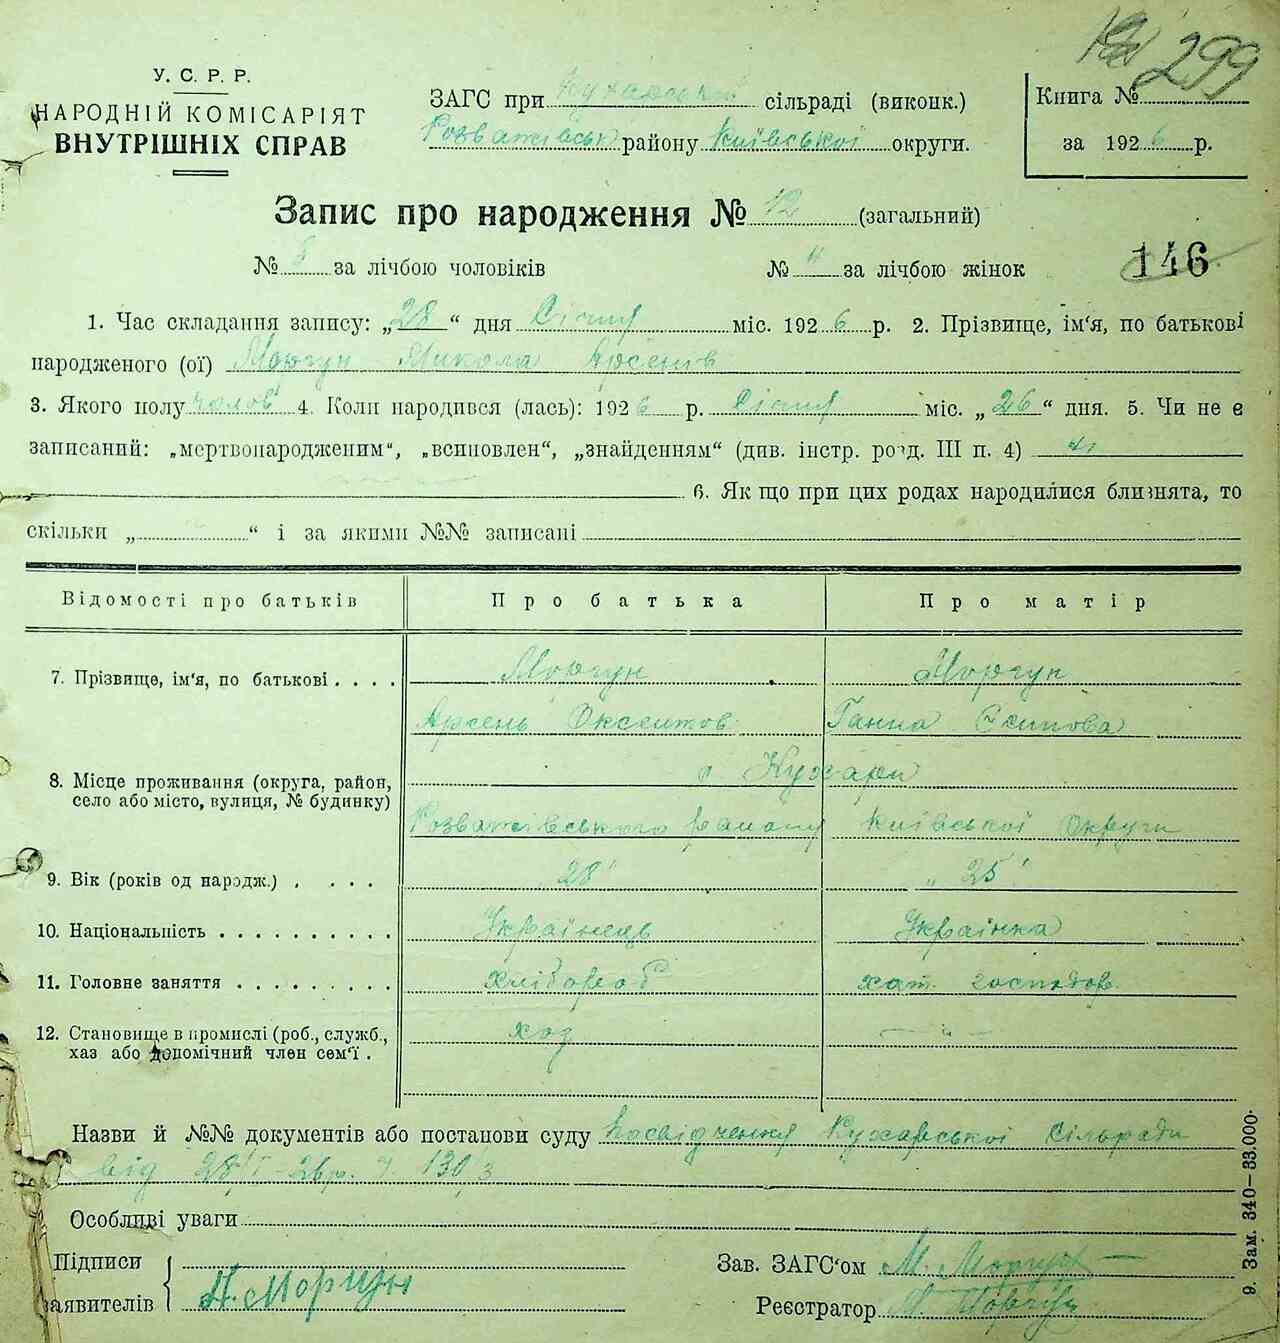 299
У. С. Р. Р.
НАРОДНІЙ КОМІСАРІЯТ
ВНУТРІШНІХ СПРАВ
ЗАГС при Кухарській сільраді (виконк.)
Розважівськ району Київської округи.
Книга №
за 1926 р.
Запис про народження № 12 (загальний)
№ 8 за лічбою чоловіків
№ " за лічбою жінок
146
1. Час складання запису: „28“ дня Січня міс. 1926 р. 2. Прізвище, ім‘я, по батькові
народженого (ої) Моргун Микола Арсенів
3. Якого полу чолов 4. Коли народився (лась): 1926 р. Січня міс. „26“ дня. 5. Чи не є
записаний: „мертвонародженим“, „всиновлен“, „знайденням“ (див. інстр. розд. III п. 4)
6. Як що при цих родах народилися близнята, то
скільки „ “ і за якими №№ записані
Відомості про батьків Про батька Про матір
7. Прізвище, ім‘я, по батькові . . . . Моргун Моргун
Арсень Оксентов Ганна Осипова
8. Місце проживання (округа, район, с Кухари
село або місто, вулиця, № будинку)
Розважівського району Київської Округи
9. Вік (років од народж.) . . . . „28“ „25“
10. Національність . . . . . . . . . . Українець Українка
11. Головне заняття . . . . . . . . . хлібороб хат. господар.
12. Становище в промислі (роб., служб., хоз — " —
хаз або допомічний член сем‘ї .
Назви й №№ документів або постанови суду Посвідчення Кухарської Сільради
від 28/I - 26 р. ч. 130/3
Особливі уваги
Підписи
заявителів А. Моргун
Зав. ЗАГС‘ом М. Моргун
Реєстратор М. Моргун
9. Зам. 340–33.000.